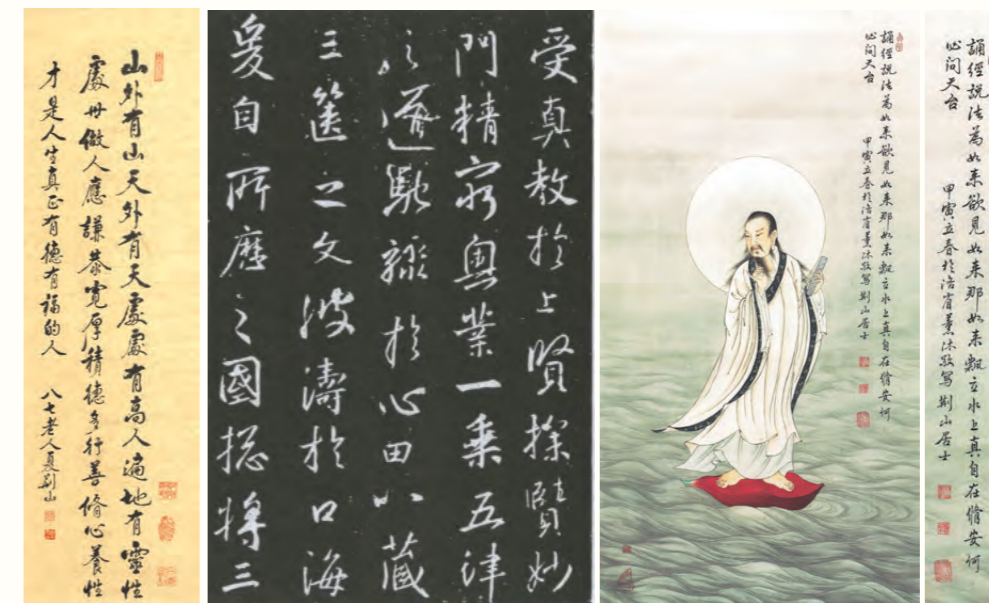 山外有山天外有天處處有高人遍地有靈性
處世做人應謙恭寬厚積德多行善脩心養性
才是人生真正有德有福的人 八七老人夏荆山
受真教於上賢探賾妙
門精窮奧業一乘五律
之道馳驟於心田八藏
三篋之文波濤於口海
爰自所歷之國揔將三
誦經說法為如來欲見如來那如來飄立水上真自在脩安何
必问天台 甲寅立春於薰沐敬寫荆山居士
誦經說法為如來欲見如來那如來飄立水上真自在脩安何
必问天台 甲寅立春於薰沐敬寫荆山居士